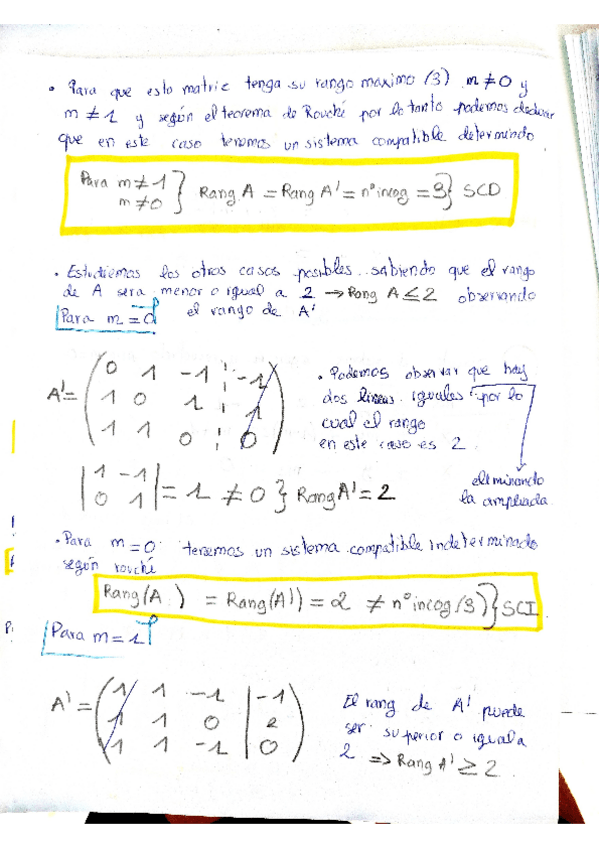 • Para que esto matriz tenga su rango maximo (3) m ≠ 0 y
m ≠ 1 y según el teorema de Rouché por lo tanto podemos deducir
que en este caso tenemos un sistema compatible determindo
Para m ≠ 1 } Rang A = Rang A' = nº incog = 3} SCD
m ≠ 0
• Estudiemos los otros casos posibles sabiendo que el rango
de A sera menor o igual a 2 → Rang A ≤ 2 observando
Para m = 0 el rango de A'
A' = ( 0 1 -1 ¦ -1 )
1 0 1 ¦ 1
1 1 0 ¦ 0
• Podemos observar que hay
dos lineas iguales por lo
cual el rango
en este caso es 2
eliminando
la ampliada
| 1 -1 |
| 0 1 | = 1 ≠ 0 } Rang A' = 2
• Para m = 0 tenemos un sistema compatible indeterminado
según rouché
Rang(A) = Rang(A') = 2 ≠ nº incog (3) } SCI
Para m = 1
A' = ( 1 1 -1 | -1 )
1 1 0 | 2
1 1 -1 | 0
El rang de A' puede
ser superior o iguala
2 ⇒ Rang A' ≥ 2